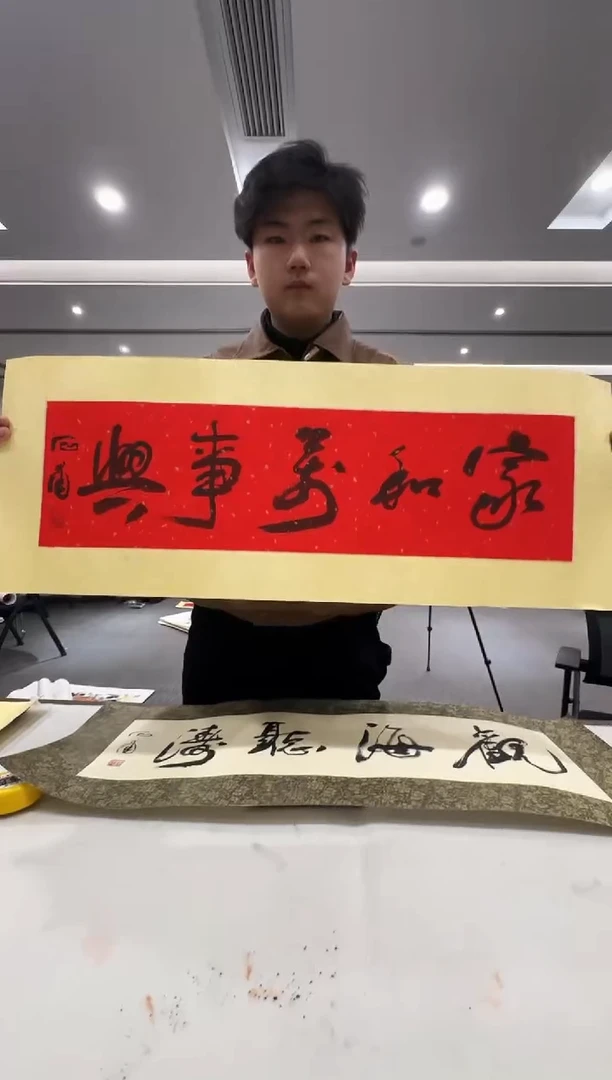 家和萬事興
觀海聽濤